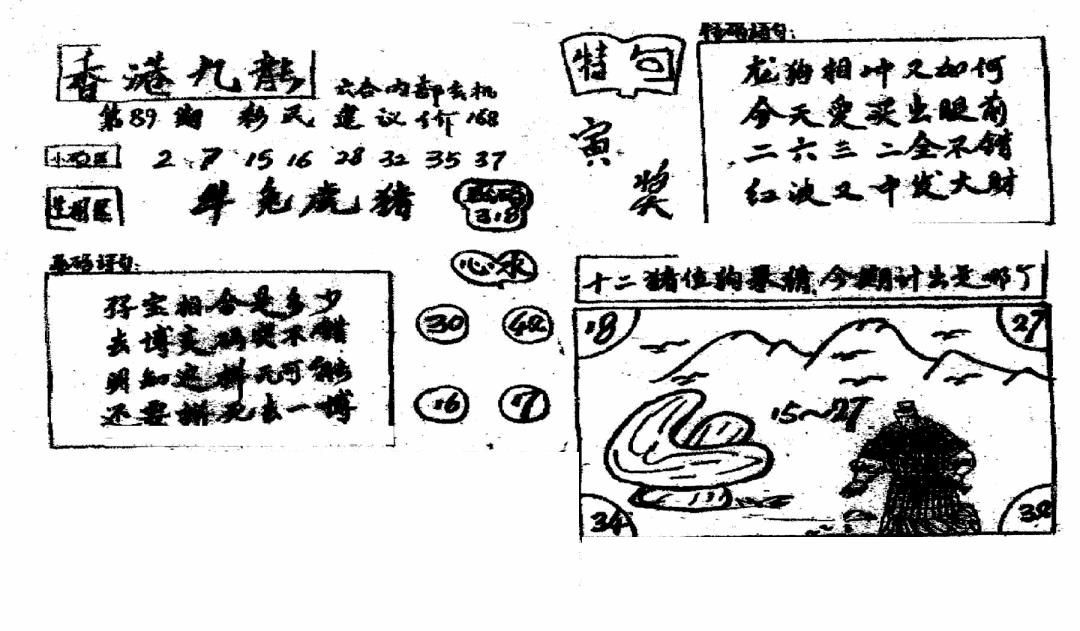 香港九龍
六合内部玄机
第89期 彩民建议价168
2 7 15 16 28 32 35 37
牛兔虎猪
3.8
心水
30
16
17
孖宝相合是多少
去博玄码奖不错
明知这样死可能
还要拼死去一博
特句
寅
奖
龙狗相冲又如何
今天爱买出眼前
二六三二全不错
红波又中发大财
十二猪位狗果猜今期计出是哪丁
18
27
15~27
34